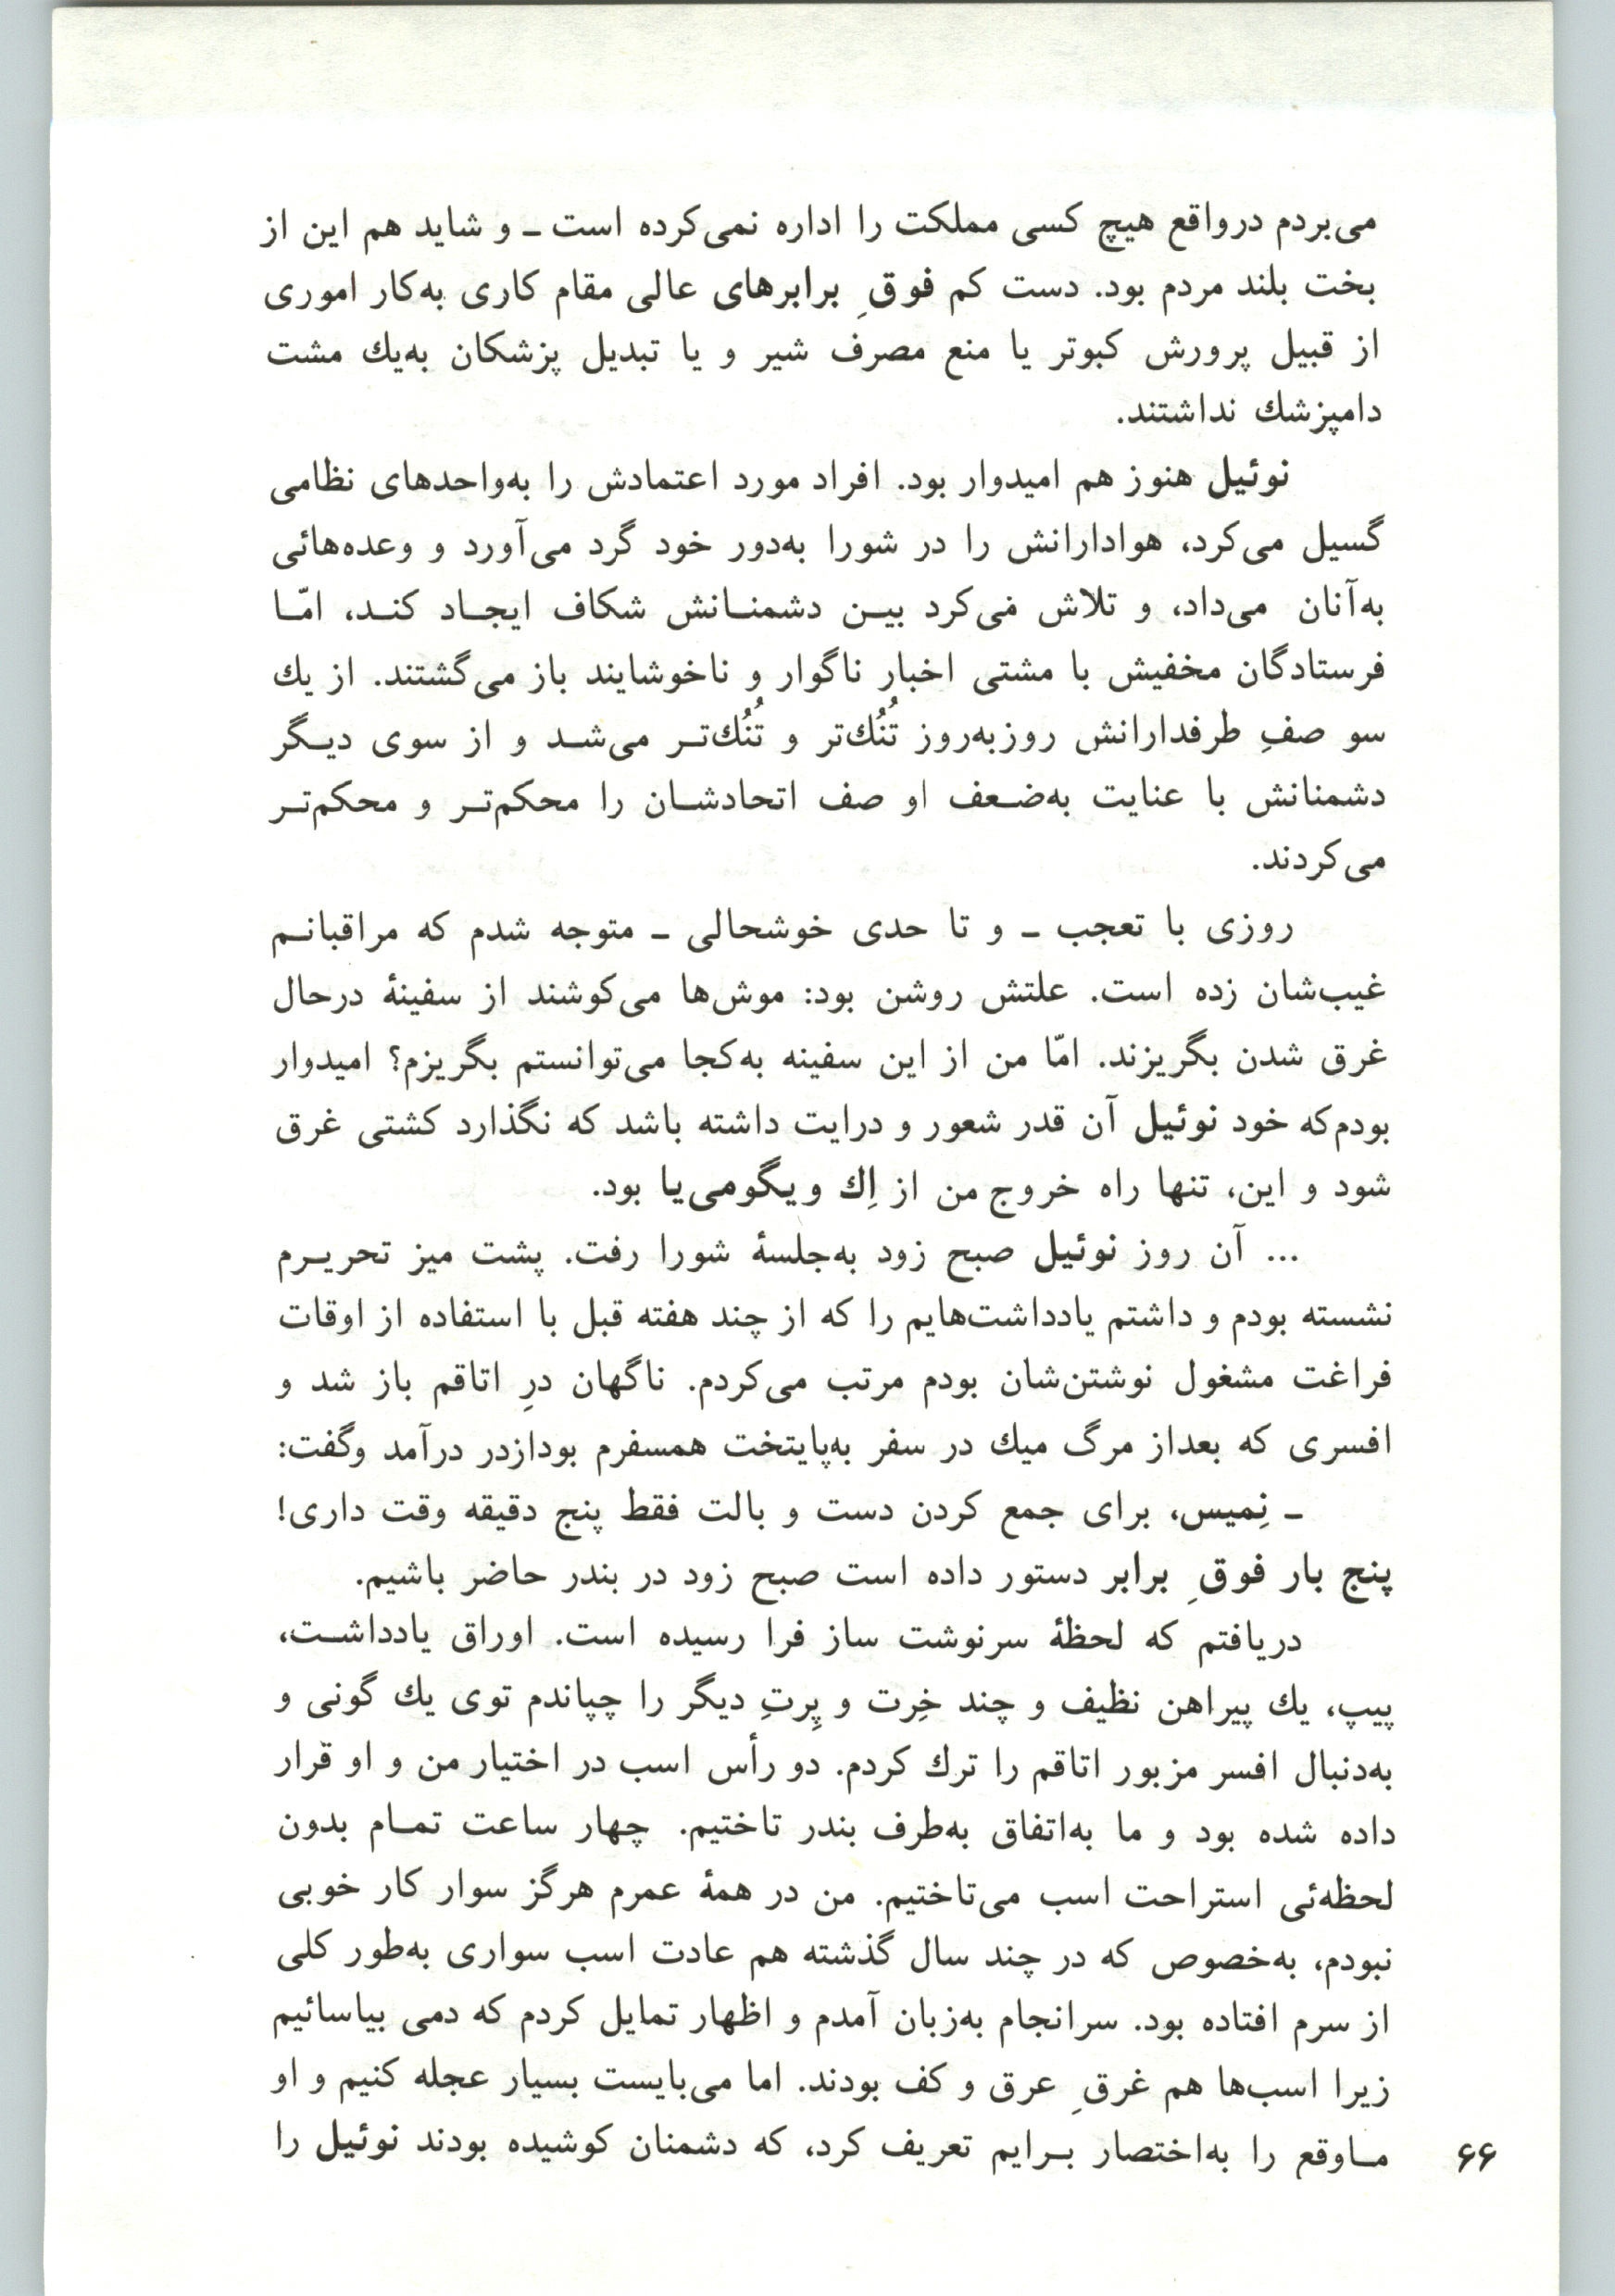 می‌بردم درواقع هیچ کسی مملکت را اداره نمی‌کرده است ـ و شاید هم این از
بخت بلند مردم بود. دست کم فوقِ برابرهای عالی مقام کاری به‌کار اموری
از قبیل پرورش کبوتر یا منع مصرف شیر و یا تبدیل پزشکان به‌یك مشت
دامپزشك نداشتند.
نوئیل هنوز هم امیدوار بود. افراد مورد اعتمادش را به‌واحدهای نظامی
گسیل می‌کرد، هوادارانش را در شورا به‌دور خود گرد می‌آورد و وعده‌هائی
به‌آنان می‌داد، و تلاش می‌کرد بیـن دشمنـانش شکاف ایجـاد کنـد، امّـا
فرستادگان مخفیش با مشتی اخبار ناگوار و ناخوشایند باز می‌گشتند. از یك
سو صفِ طرفدارانش روزبه‌روز تُنُك‌تر و تُنُك‌تـر می‌شـد و از سوی دیـگر
دشمنانش با عنایت به‌ضـعف او صف اتحادشـان را محکم‌تـر و محکم‌تـر
می‌کردند.
روزی با تعجب ـ و تا حدی خوشحالی ـ متوجه شدم که مراقبانـم
غیب‌شان زده است. علتش روشن بود: موش‌ها می‌کوشند از سفینهٔ درحال
غرق شدن بگریزند. امّا من از این سفینه به‌کجا می‌توانستم بگریزم؟ امیدوار
بودم‌که خود نوئیل آن قدر شعور و درایت داشته باشد که نگذارد کشتی غرق
شود و این، تنها راه خروج من از اِك ویگومی‌یا بود.
... آن روز نوئیل صبح زود به‌جلسهٔ شورا رفت. پشت میز تحریـرم
نشسته بودم و داشتم یادداشت‌هایم را که از چند هفته قبل با استفاده از اوقات
فراغت مشغول نوشتن‌شان بودم مرتب می‌کردم. ناگهان درِ اتاقم باز شد و
افسری که بعداز مرگ میك در سفر به‌پایتخت همسفرم بودازدر درآمد وگفت:
ـ نِمیس، برای جمع کردن دست و بالت فقط پنج دقیقه وقت داری!
پنج بار فوقِ برابر دستور داده است صبح زود در بندر حاضر باشیم.
دریافتم که لحظهٔ سرنوشت ساز فرا رسیده است. اوراق یادداشـت،
پیپ، یك پیراهن نظیف و چند خِرت و پِرتِ دیگر را چپاندم توی یك گونی و
به‌دنبال افسر مزبور اتاقم را ترك کردم. دو رأس اسب در اختیار من و او قرار
داده شده بود و ما به‌اتفاق به‌طرف بندر تاختیم. چهار ساعت تمـام بدون
لحظه‌ئی استراحت اسب می‌تاختیم. من در همهٔ عمرم هرگز سوار کار خوبی
نبودم، به‌خصوص که در چند سال گذشته هم عادت اسب سواری به‌طور کلی
از سرم افتاده بود. سرانجام به‌زبان آمدم و اظهار تمایل کردم که دمی بیاسائیم
زیرا اسب‌ها هم غرقِ عرق و کف بودند. اما می‌بایست بسیار عجله کنیم و او
مـاوقع را به‌اختصار بـرایم تعریف کرد، که دشمنان کوشیده بودند نوئیل را
۶۶